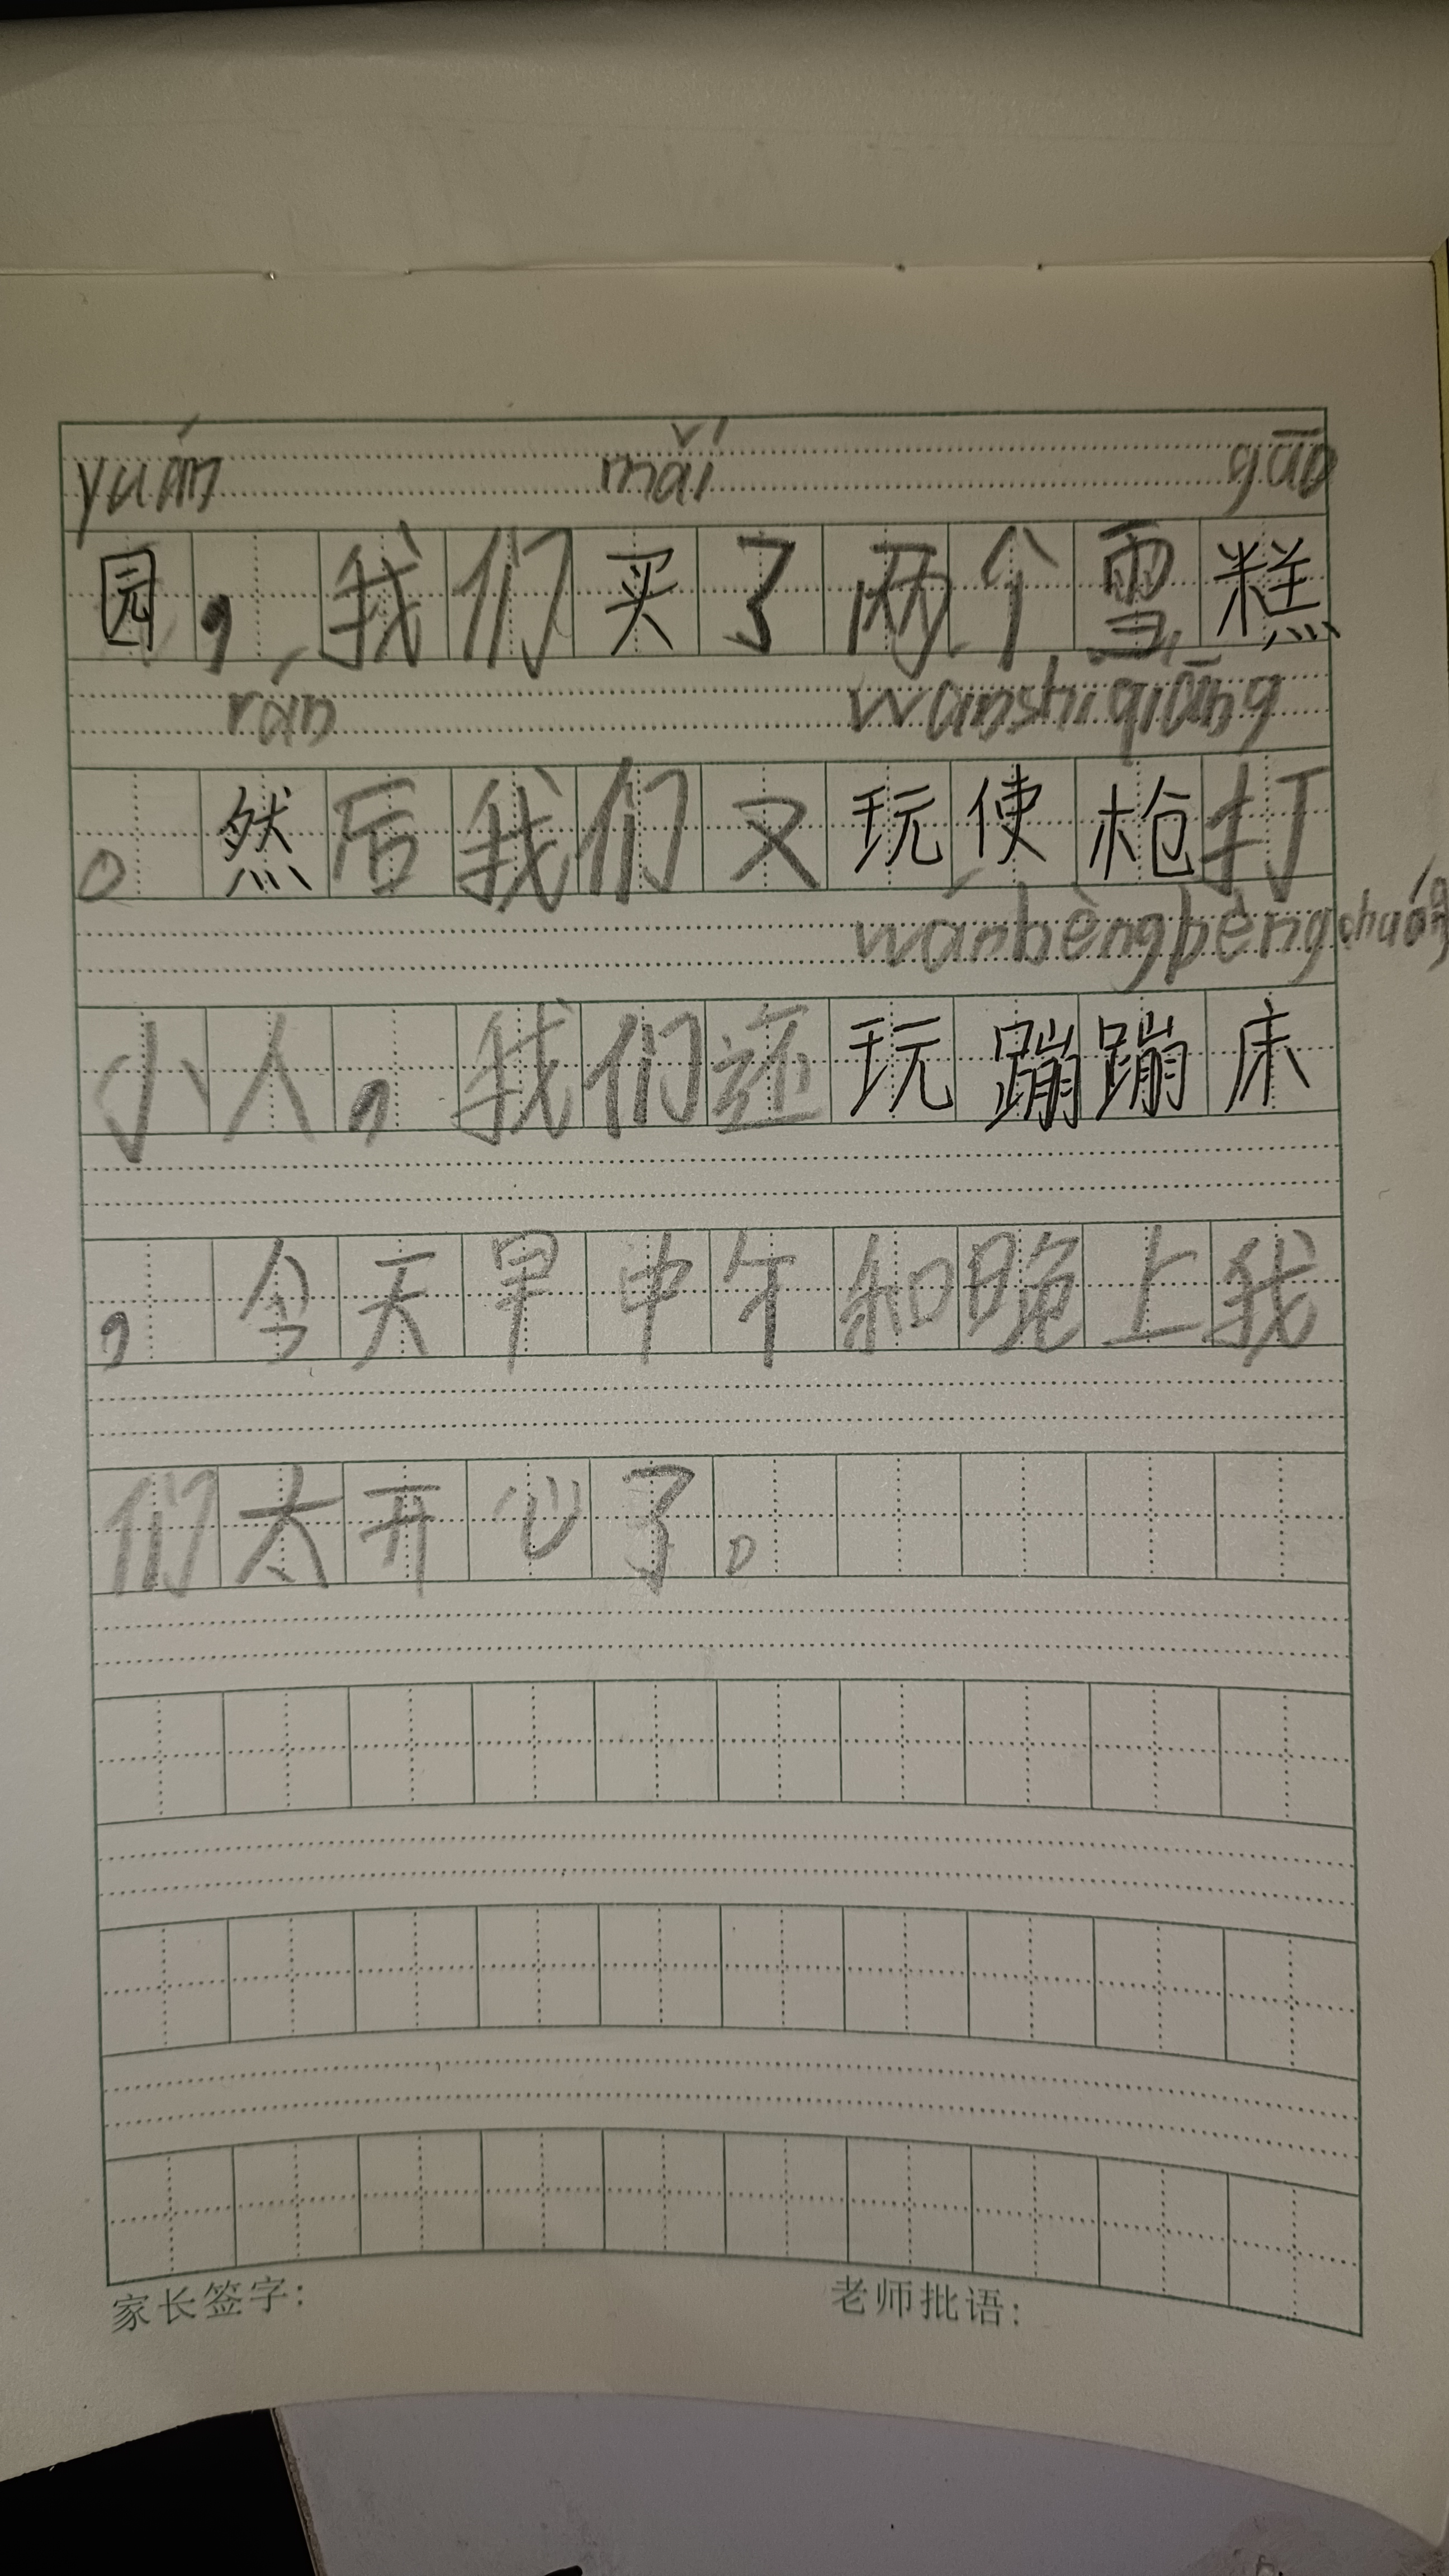 yuán mǎi gāo
园，我们买了两个雪糕
rán wánshǐqiāng
。然后我们又玩使枪打
wánbèngbèngchuáng
小人，我们还玩蹦蹦床
，今天早中午和晚上我
们太开心了。
家长签字： 老师批语：